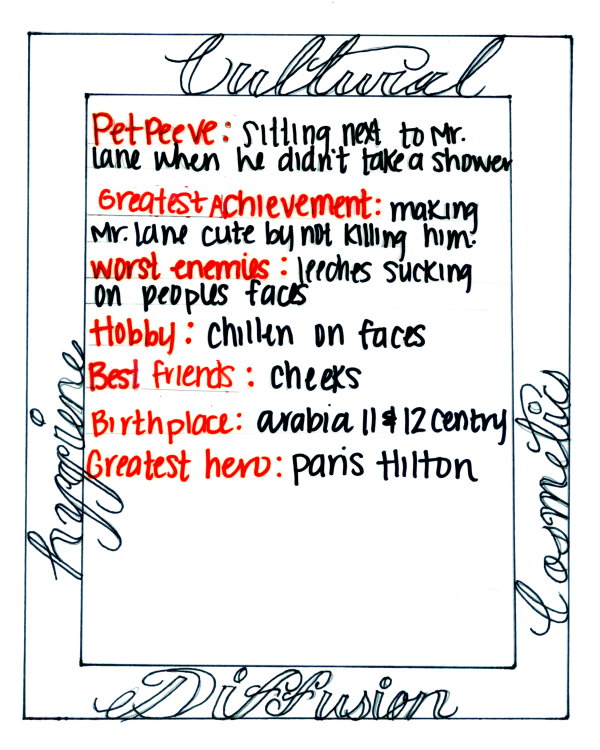 Cultural
Pet Peeve: sitting next to Mr.
lane when he didn't take a shower
Greatest Achievement: making
Mr. lane cute by not killing him.
worst enemies: leeches sucking
on peoples faces
Hobby: chillen on faces
Best friends: cheeks
Birthplace: arabia 11 & 12 centry
Greatest hero: paris Hilton
hygiene
Cosmetics
Diffusion